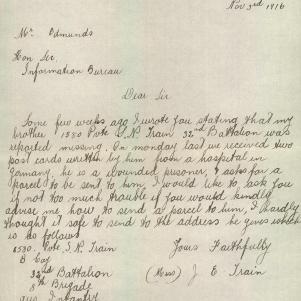 Nov 3rd 1916
Mr. Edmunds
Hon Sir
Information Bureau
Dear Sir
Some few weeks ago I wrote you stating that my
brother 1580 Pvte S.R Train 32nd Battalion was
reported missing. On monday last we received two
post cards written by him from a hospital in
Germany, he is a wounded prisoner, & asks for a
parcel to be sent to him, I would like to ask you
if not too much trouble if you would kindly
advise me how to send a parcel to him, I hardly
thought it safe to send to the address he gives which
is as follows
1580. Pvte S.R Train
Yours Faithfully
B Coy
(Miss) J E. Train
32nd Battalion
8th Brigade
Infantry